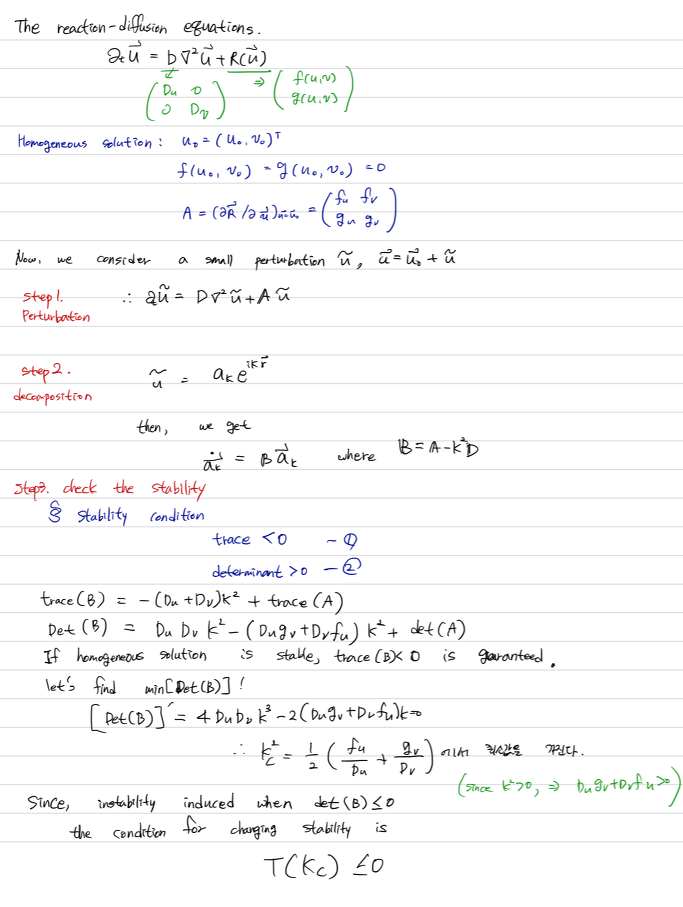 The reaction-diffusion equations.
∂t u⃗ = D∇²u⃗ + R(u⃗)
(Du 0
0 Dv)
⇒ (f(u,v)
g(u,v))
Homogeneous solution : u₀ = (u₀, v₀)ᵀ
f(u₀, v₀) = g(u₀, v₀) = 0
A = (∂R⃗/∂u⃗)u⃗=u⃗₀ = (fu fv
gu gv)
Now, we consider a small perturbation ũ, u⃗ = u⃗₀ + ũ
Step 1.
Perturbation
∴ ∂ũ = D∇²ũ + Aũ
Step 2.
decomposition
ũ = aₖe^{ik r⃗}
then, we get
ȧ⃗ₖ = B a⃗ₖ where B = A - k²D
Step3. check the stability
§ Stability condition
trace < 0 - ①
determinant > 0 - ②
trace(B) = -(Du + Dv)k² + trace(A)
Det(B) = Du Dv k² - (Du gv + Dv fu) k² + det(A)
If homogeneous solution is stable, trace(B) < 0 is guaranteed.
let's find min[Det(B)] !
[Det(B)]' = 4DuDv k³ - 2(Du gv + Dv fu)k = 0
∴ k_c² = 1/2 (fu/Du + gv/Dv) 에서 최솟값을 가진다.
(since k²>0, ⇒ Du gv + Dv fu > 0)
Since, instability induced when det(B) ≤ 0
the condition for changing stability is
T(Kc) ≤ 0